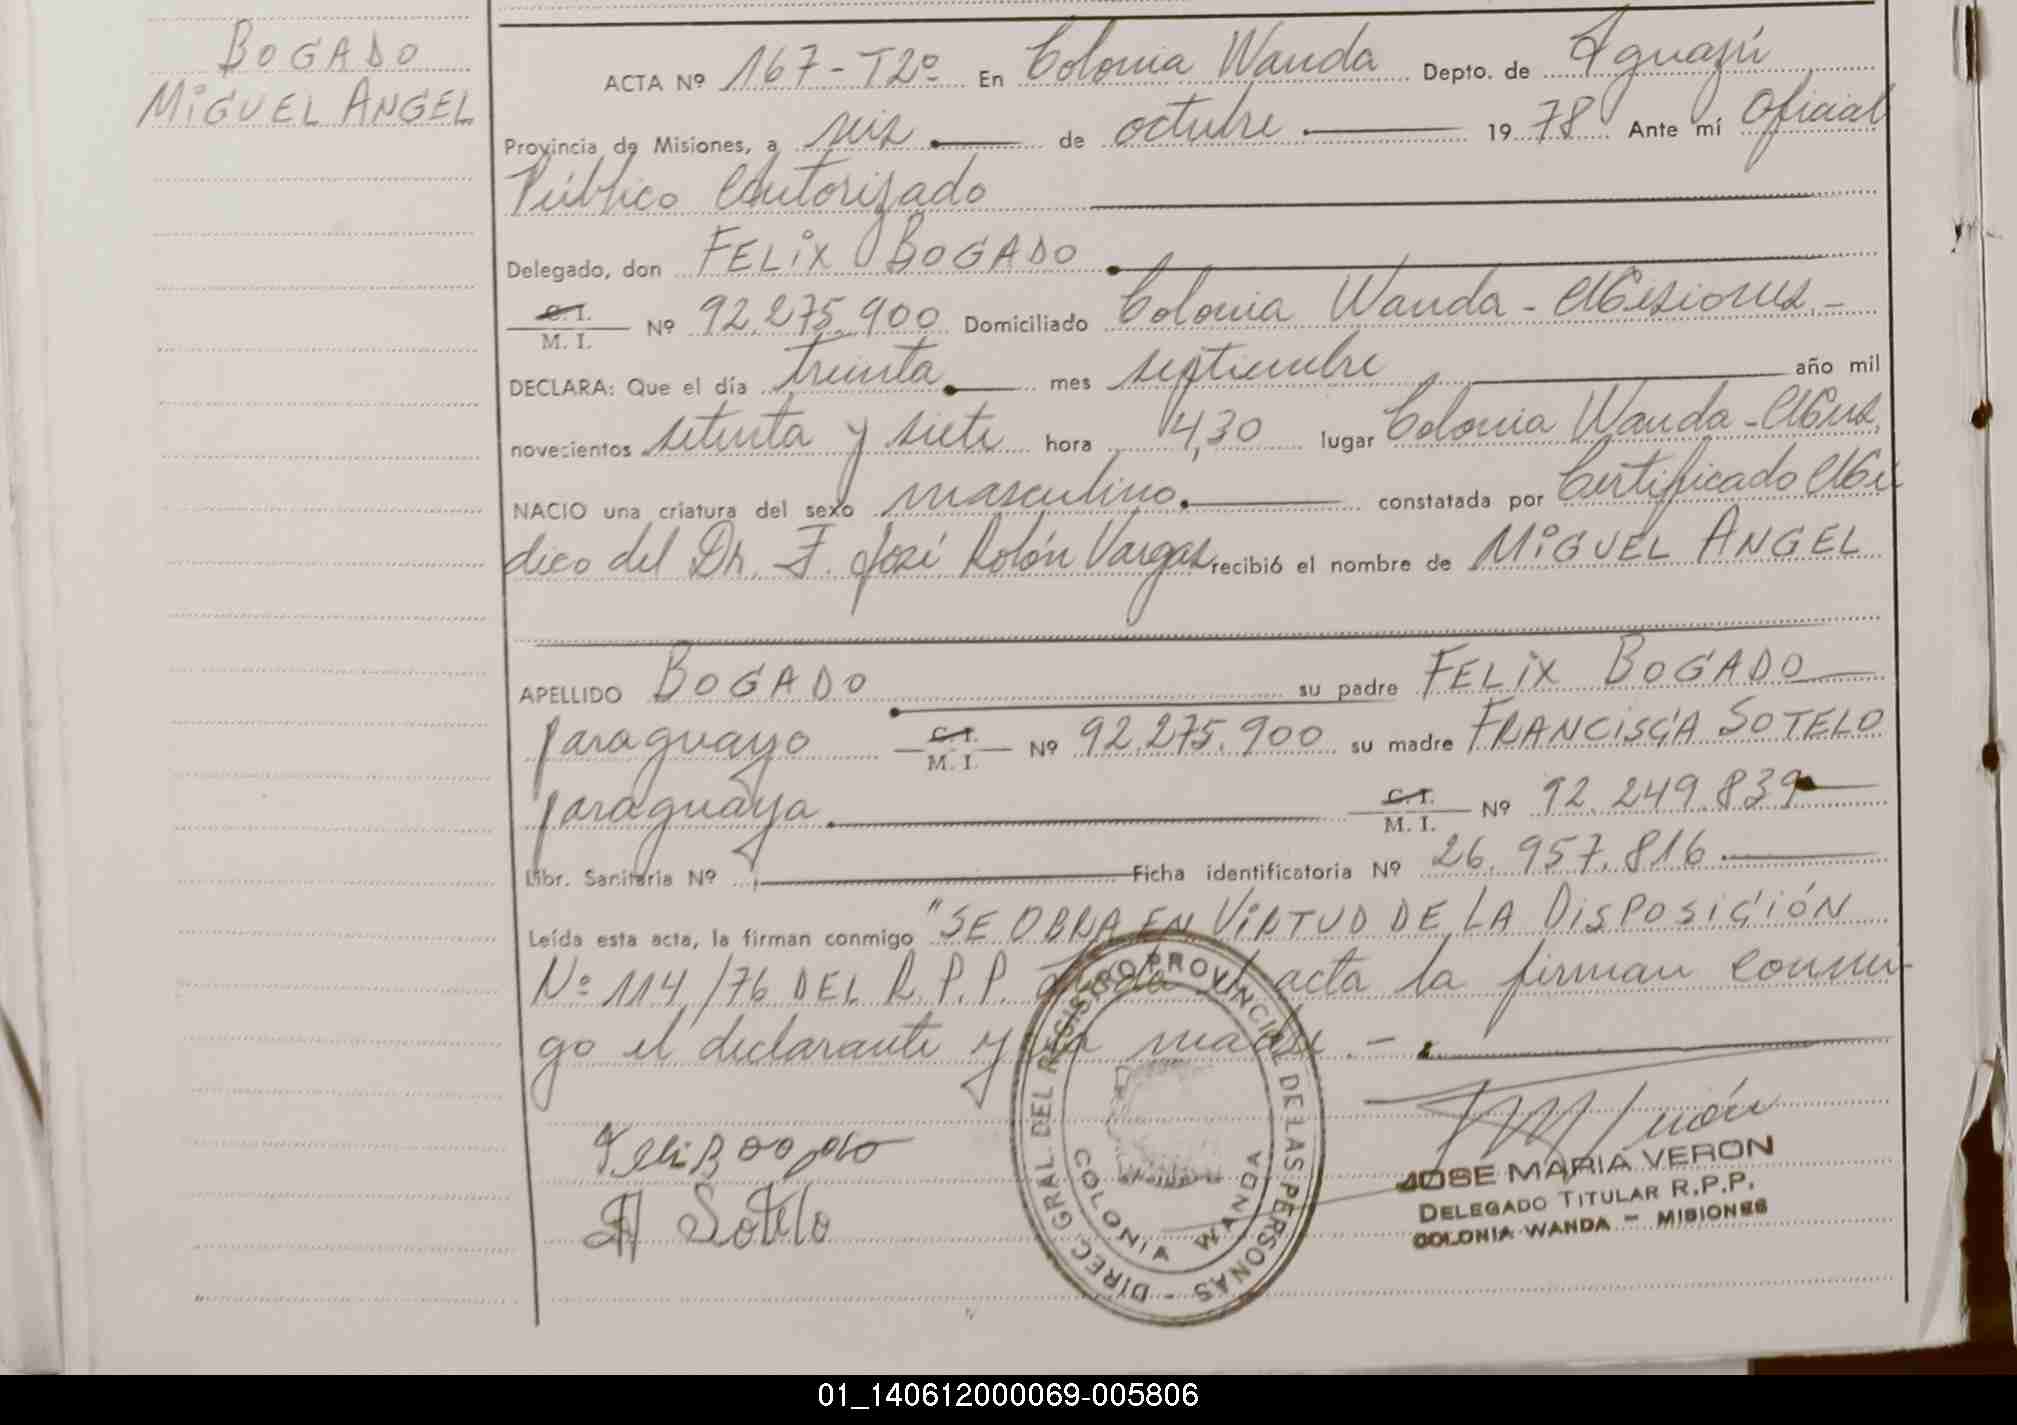 BOGADO
MIGUEL ANGEL
ACTA Nº 167-T2º En Colonia Wanda Depto. de Iguazú
Provincia de Misiones, a seis de octubre 1978 Ante mí Oficial
Público Autorizado
Delegado, don FELIX BOGADO
C. I.
M. I. Nº 92.275.900 Domiciliado Colonia Wanda - Misiones.-
DECLARA: Que el día treinta mes septiembre año mil
novecientos setenta y siete hora 14,30 lugar Colonia Wanda - Mnes.
NACIO una criatura del sexo masculino. constatada por Certificado Mé
dico del Dr. F. José Rolón Vargas recibió el nombre de MIGUEL ANGEL
APELLIDO BOGADO su padre FELIX BOGADO
paraguayo C. I.
M. I. Nº 92.275.900 su madre FRANCISCA SOTELO
paraguaya. C. I.
M. I. Nº 92.249.839
Libr. Sanitaria Nº Ficha identificatoria Nº 26.957.816
Leída esta acta, la firman conmigo "SE OBRA EN VIRTUD DE LA DISPOSICIÓN
Nº 114/76 DEL R.P.P. Leída el acta la firman conmi-
go el declarante y la madre.-
Sotelo
DIREC. GRAL. DEL REGISTRO PROVINCIAL DE LAS PERSONAS -
COLONIA WANDA
JOSE MARIA VERON
DELEGADO TITULAR R.P.P.
COLONIA WANDA - MISIONES
01_140612000069-005806